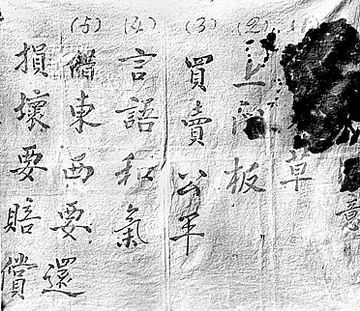 意
草
(2) 上板
(3) 買賣公平
(4) 言語和氣
(5) 借東西要還
損壞要賠償